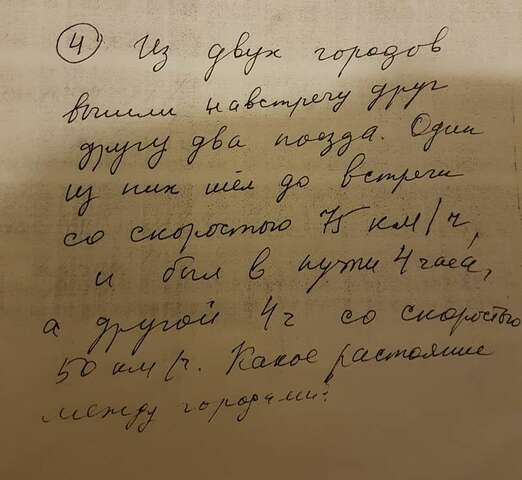 4 Из двух городов
вышли навстречу друг
другу два поезда. Один
из них шёл до встречи
со скоростью 75 км/ч,
и был в пути 4 часа,
а другой 4 ч со скоростью
50 км/ч. Какое растояние
между городами?